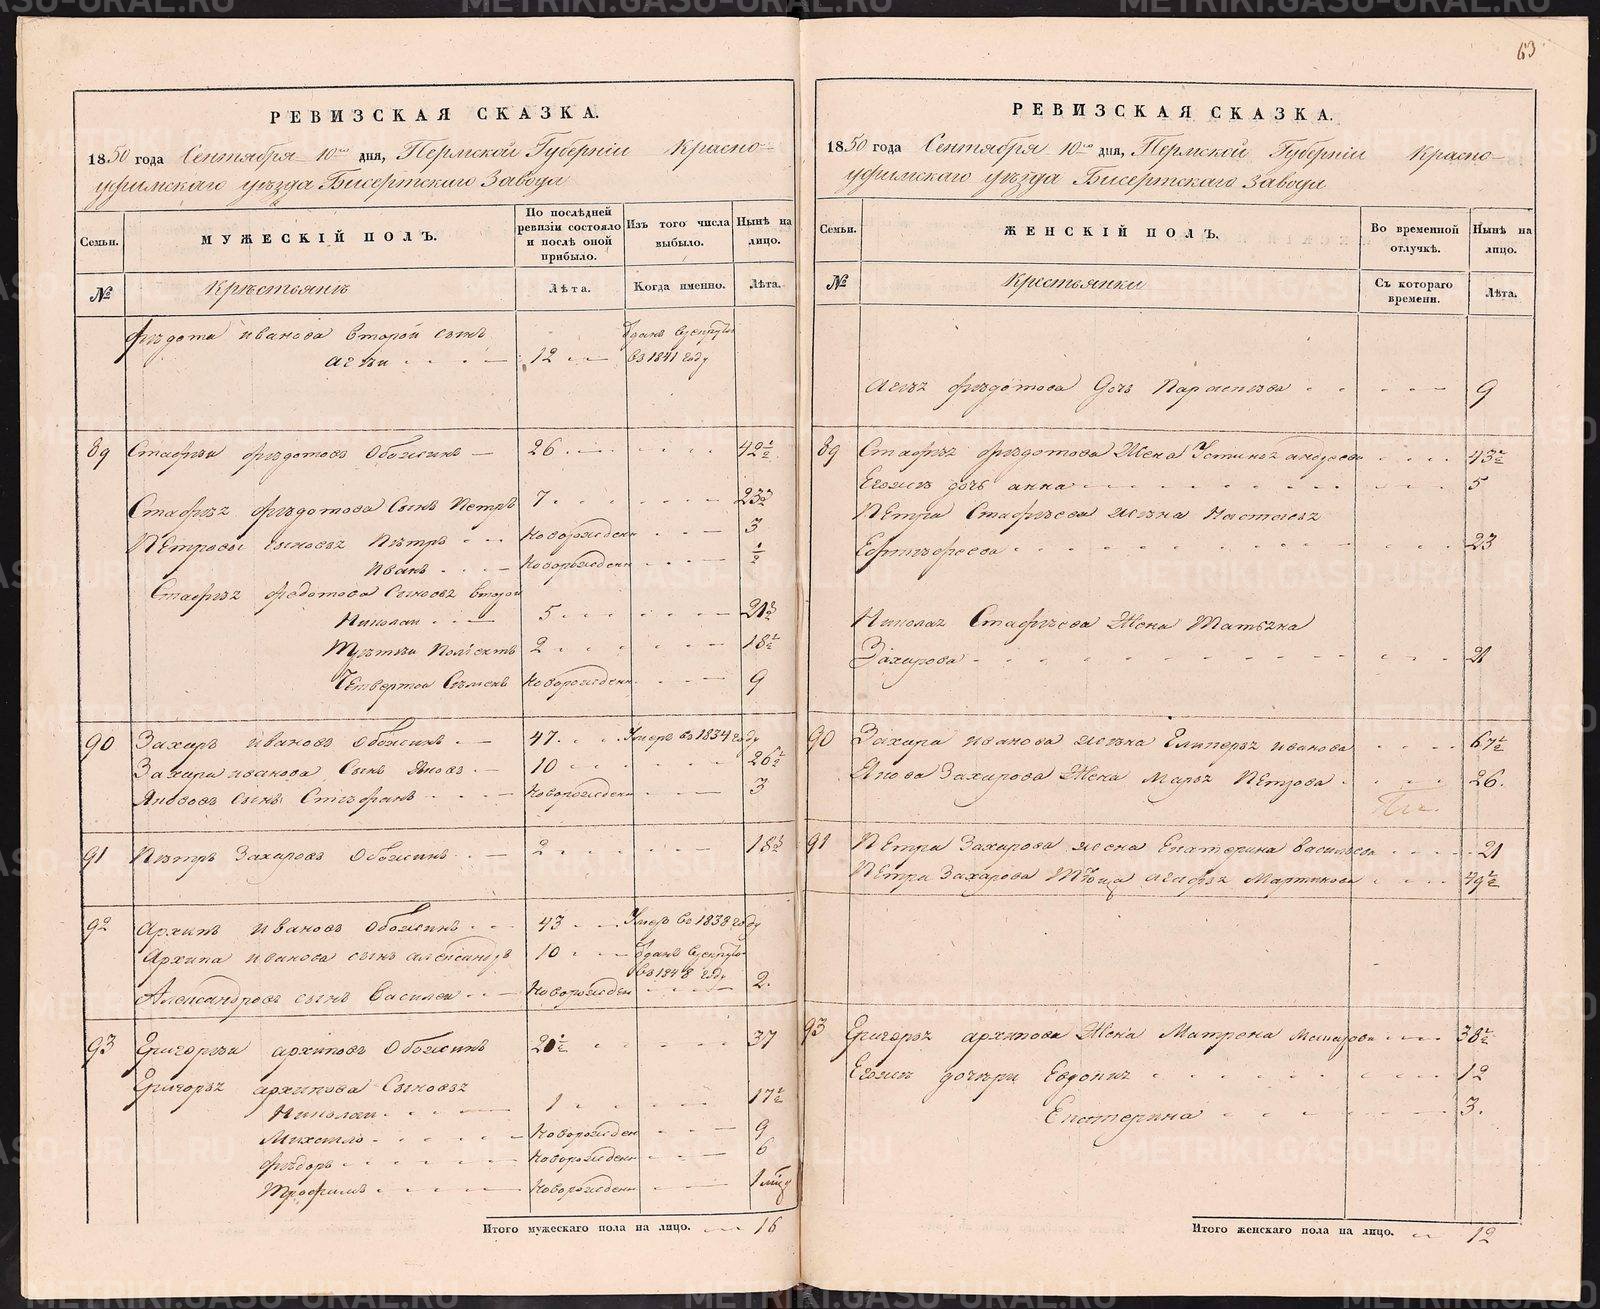 63
РЕВИЗСКАЯ СКАЗКА.
1850 года Сентября 10го дня, Пермской Губерніи Красно-
уфимскаго уѣзда Бисертскаго Завода
Семьи.
МУЖЕСКІЙ ПОЛЪ.
По послѣдней ревизіи состояло и послѣ оной прибыло.
Изъ того числа выбыло.
Нынѣ на лицо.
№
Крѣстьянъ
Лѣта.
Когда именно.
Лѣта.
Фѣдота иванова второй сынъ
12
въ 1841 году
89 Стафѣи фѣдотовъ Обожинъ 26 42 1/2
Стафѣя фѣдотова Сынъ Петръ 7 23 1/2
Петровы сыновья Пѣтръ Новорожденн 3
Иванъ Новорожденн 1/2
Стафѣя федотова Сыновья второй
Николаи 5 21 1/2
2 18 1/2
Четвертои Сѣменъ Новорожденн 9
90 Захаръ ивановъ Обожинъ 47 Умеръ въ 1834 году
Захара иванова Сынъ Яковъ 10 26 1/2
Яковъ сынъ Стѣфанъ Новорожденн 3
91 Пѣтръ Захаровъ Обожинъ 2 18 1/2
92 Архипъ ивановъ Обожинъ 43 Умеръ въ 1838 году
Архипа иванова сынъ александръ 10
въ 1848 году
Александровъ сынъ Василеи Новорожден 2.
93 Григорѣи архиповъ Обожинъ 20 1/2 37
Григорья архипова Сыновья
Николаи 1 17 1/2
Михаило Новорожден 9
Фѣдоръ Новорожденн 6
Трофимъ Новорожденн 1
Итого мужескаго пола на лицо. 16
РЕВИЗСКАЯ СКАЗКА.
1850 года Сентября 10го дня, Пермской Губерніи Красно-
уфимскаго уѣзда Бисертскаго Завода
Семьи.
ЖЕНСКІЙ ПОЛЪ.
Во временной отлучкѣ.
Нынѣ на лицо.
№
Крестьянки
Съ котораго времени.
Лѣта.
фѣдотова Дочь Параспѣва 9
89 Стафѣя фѣдотова Жена Устинья андреева 43 1/2
Егожъ дочь анна 5
Петра Стафѣева жена Настасья
23
Николая Стафѣева Жена Татьяна
Захарова 21
90 Захара иванова жена иванова 67 1/2
Якова Захарова Жена Марья Петрова 26.
91 Петра Захарова жена Екатерина васильева 21
Петра Захарова Тѣща агафья Мартинова 49 1/2
93 Григорья архипова Жена Матрена 38 1/2
Егожъ дочѣри Евдокия 12
Екатерина 3.
Итого женскаго пола на лицо. 12
METRIKI.GASO-URAL.RU